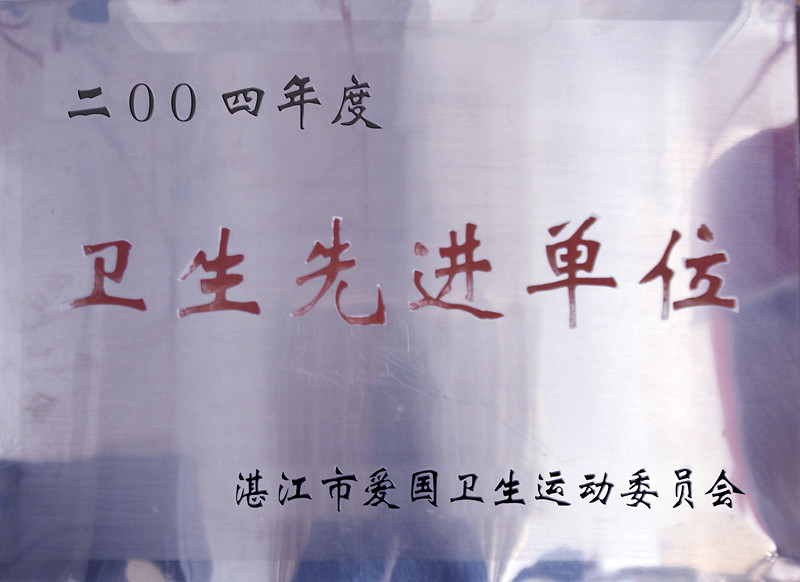 二00四年度
卫生先进单位
湛江市爱国卫生运动委员会